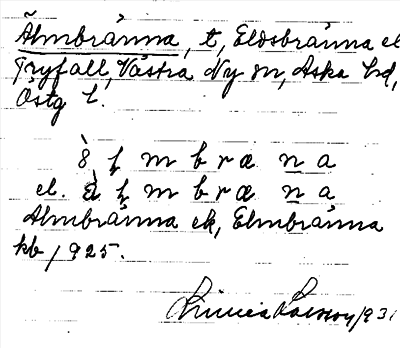 Älmbränna, t, Eldsbränna el
Tryfall, Västra Ny sn, Aska hd,
Östg l.
m b r æ n a
el. m b r æ n a
Älmbränna ek, Elmbränna
kb 1925.
Linnea Larsson 1931